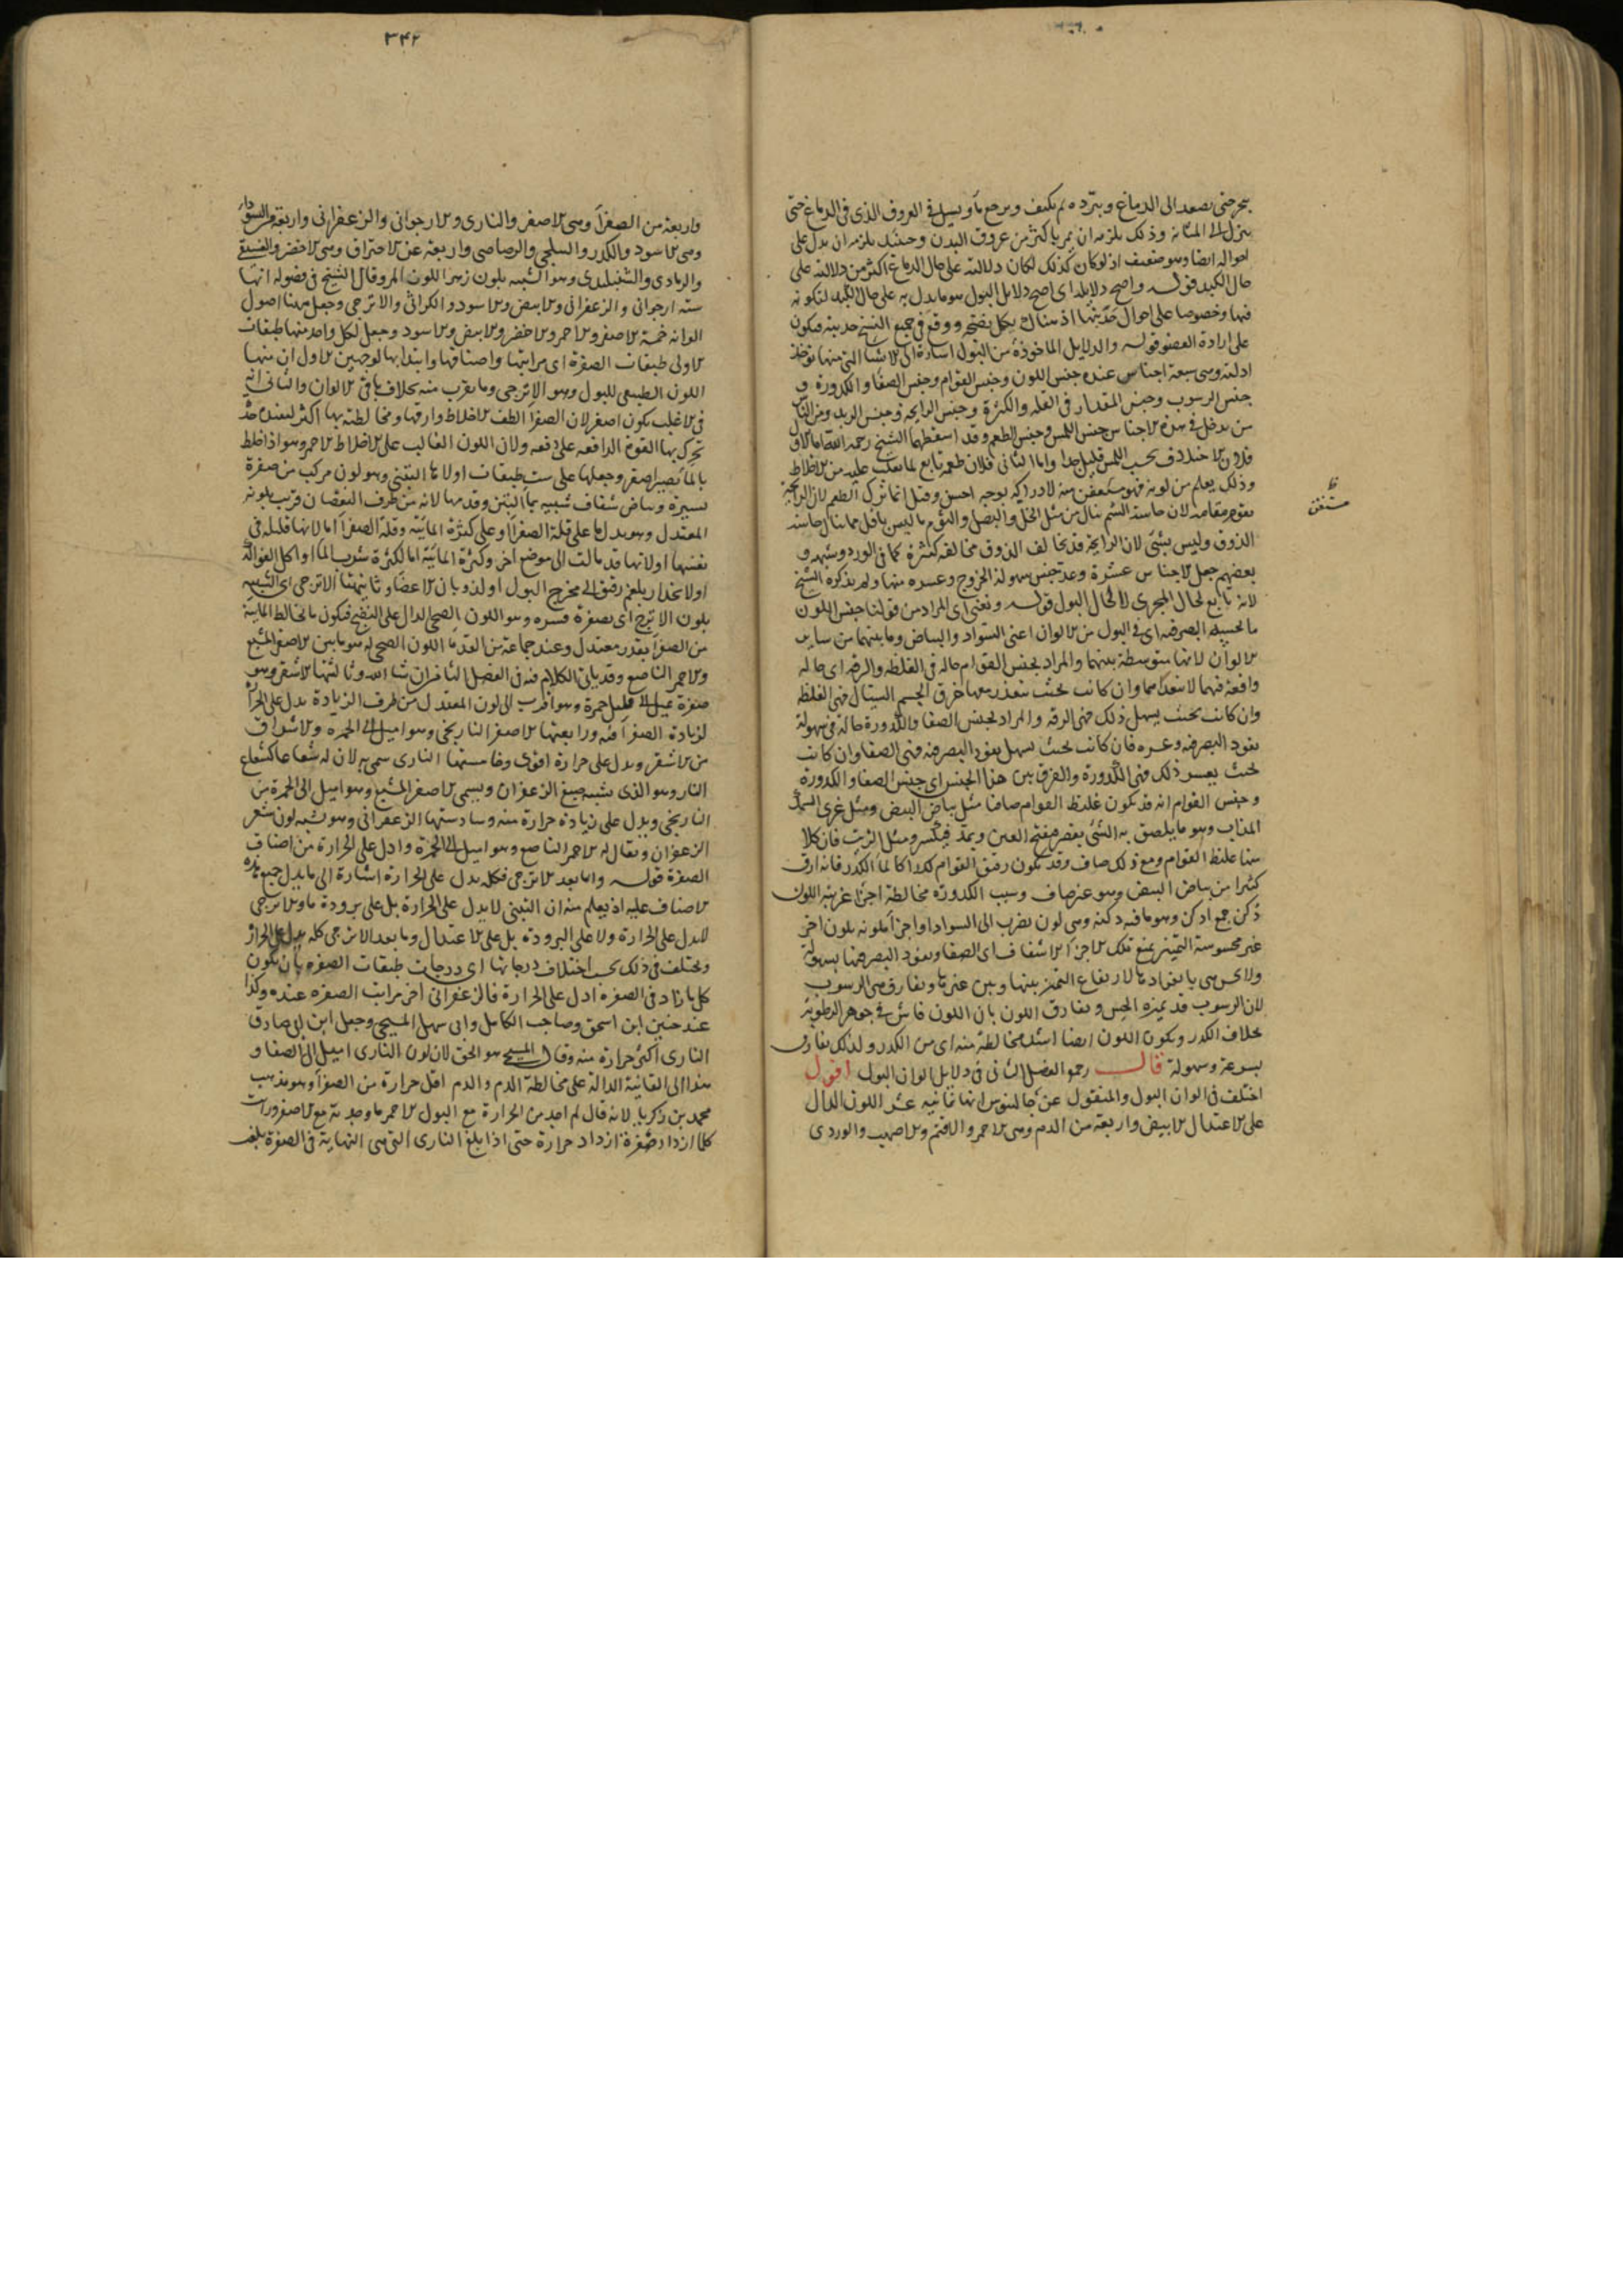 بحر حتى يصعد الى الدماغ ويبرده ثم يكثف ويرجع ماء ويسيل في العروق الذي في الدماغ حتى
ينزل الى المثانة وذلك يلزمه ان يمر باكثر من عروق البدن وحينئذ يلزم ان يدل على
احواله ايضا وهو ضعيف اذ لو كان كذلك لكان دلالته على حال الدماغ اكثر من دلالته على
حال الكبد قوله واصح دلايله اي اصح دلايل البول هو ما يدل به على حال الكبد لتكونه
فيها وخصوصا على احوال حدبتها اذ هناك يكمل نضجه ووقع في جميع النسخ حدبته فيكون
على ارادة العضو قوله والدلايل الماخوذة من البول اشارة الى الاشيا التي منها توخذ
ادلته وهي سبعة اجناس عنده جنس اللون وجنس القوام وجنس الصفا والكدورة و
جنس الرسوب وجنس المقدار في القلة والكثرة وجنس الرايحة وجنس الزبد ومن الناس
من يدخل في هذه الاجناس جنس اللمس وجنس الطعم وقد اسقطهما الشيخ رحمه الله اما الاول
فلان الاختلاف بحسب اللمس قليل جدا واما الثاني فلان طعمه تابع لما يغلب عليه من الاخلاط
وذلك يعلم من لونه فهو مستعفن منه لادراكه بوجه احسن وقيل انما ترك الطعم لان الرايحة
يقوم مقامه لان حاسة الشم تنال من مثل الخل والبصل والثوم ما ليس باقل مما تنال حاسة
الذوق وليس بشئ لان الرايحة قد تخالف الذوق مخالفة كثيرة كما في الورد وشبهه و
بعضهم جعل الاجناس عشرة وعد جنس سهولة الخروج وعسره منها ولم يذكره الشيخ
لانه تابع لحال المجرى لا لحال البول قوله ونعني اي المراد من قولنا جنس اللون
ما يحسه البصر فيه اي في البول من الالوان اعني السواد والبياض وما بينهما من ساير
الالوان لانها متوسطة بينهما والمراد بجنس القوام حاله في الغلظة والرقة اي حالة
واقعة فيها لا تتعداهما وان كانت بحيث يتعذر معها خرق الجسم السيال فهي الغلظة
وان كانت بحيث يسهل ذلك فهي الرقة والمراد بجنس الصفا والكدورة حالة في سهولة
نفوذ البصر فيه وعسره فان كانت بحيث يسهل نفوذ البصر فيه فهي الصفا وان كانت
بحيث يعسر ذلك فهي الكدورة والفرق بين هذا الجنس اي جنس الصفا والكدورة
وجنس القوام انه قد يكون غليظ القوام صافيا مثل بياض البيض ومثل غرى السمك
المذاب وهو ما يلصق به الشئ يقصر مفتح العين ويمد فيكسر ومثل الزيت فان كلا
منها غليظ القوام ومع ذلك صاف وقد يكون رقيق القوام كدرا كالماء الكدر فانه ارق
كثيرا من بياض البيض وهو غير صاف وسبب الكدورة مخالطة اجزا غريبة اللون
دكن جمع ادكن وهو ما فيه دكنة وهي لون يضرب الى السواد او اجزا ملونة بلون اخر
غير محسوسة التميز يمنع تلك الاجزا الاشفاف اي الصفا ونفوذ البصر فيها بسهولة
ولا يحس هي بانفرادها لارتفاع التميز بينها وبين غيرها ويفارق هي الرسوب
لان الرسوب قد يميزه الحس ويفارق اللون بان اللون فاش في جوهر الرطوبة
بخلاف الكدر ويكون اللون ايضا اشد مخالطة منه اي من الكدر ولذلك يفارق
بسرعة وسهولة قال رحمه الفصل الثاني في دلايل الوان البول اقول
اختلف في الوان البول والمنقول عن جالينوس انها ثمانية عشر اللون الدال
على الاعتدال الابيض واربعة من الدم وهي الاحمر والاقتم والاصهب والوردي
ظ
مستغن
٣٤٢
واربعة من الصفرا وهي الاصفر والناري والارجواني والزعفراني واربعة من السودا
وهي الاسود والكدر والسلجمي والرصاصي واربعة عن الاحتراق وهي الاخضر والفستقي
والرمادي والشنبليدي وهو الشبيه بلون زهر اللون المر وقال الشيخ في فصوله انها
ستة ارجواني والزعفراني والابيض والاسود والكراثي والاترجي وجعل ههنا اصول
الوانه خمسة الاصفر والاحمر والاخضر والابيض والاسود وجعل لكل واحد منها طبقات
الاولى طبقات الصفرة اي مراتبها واصنافها وابتدا بها لوجهين الاول ان منها
اللون الطبيعي للبول وهو الاترجي وما يقرب منه بخلاف باقي الالوان والثاني انه
في الاغلب يكون اصفر لان الصفرا الطف الاخلاط وارقها ومخالطته بها اكثر
تحرك بها القوة الدافعة على دفعه ولان اللون الغالب على الاخلاط الاحمر وهو اذا خلط
بالماء تصير اصفر وجعلها على ست طبقات اولاها التبني وهو لون مركب من صفرة
يسيرة وبياض شفاف شبيه بماء التبن وقدمها لانه من طرف النقصان قريب بلونه
المعتدل وهو يدل اما على قلة الصفرا او على كثرة المائية وقلة الصفرا اما لانها قليلة في
نفسها او لانها قد مالت الى موضع اخر وكثرة المائية اما لكثرة شرب الماء او اكل الفواكه
او لانحدار بلغم رقيق الى مخرج البول او لذوبان الاعضا وثانيتها الاترجي اي الشبيه
بلون الاترج اي بصفرة قشره وهو اللون الصحي الدال على النضج فيكون ما يخالط المائية
من الصفرا بقدر معتدل وعند جماعة من القدما اللون الصحي له هو ما بين الاصفر المشبع
والاحمر الناصع وقد ياتي الكلام فيه في الفصل الثاني ان شا الله وثالثتها الاشقر وهو
صفرة يميل الى قليل حمرة وهو اقرب الى لون المعتدل من طرف الزيادة يدل على الحرارة
لزيادة الصفرا فيه ورابعتها الاصفر النارنجي وهو اميل الى الحمرة والاشراق
من الاشقر ويدل على حرارة اقوى وخامستها الناري سمي به لان له شعاعا كشعاع
النار وهو الذي يشبه صبغ الزعفران ويسمى الاصفر المشبع وهو اميل الى الحمرة من
النارنجي ويدل على زيادة حرارة منه وسادستها الزعفراني وهو يشبه لون شعر
الزعفران ويقال له الاحمر الناصع وهو اميل الى الحمرة وادل على الحرارة من اصناف
الصفرة قوله واما بعد الاترجي فكله يدل على الحرارة اشارة الى ما يدل جميع هذه
الاصناف عليه اذ يعلم منه ان التبني لا يدل على الحرارة بل على برودة ما والاترجي
لا يدل على الحرارة ولا على البرودة بل على الاعتدال وما بعد الاترجي كله يدل على الحرارة
ويختلف في ذلك بحسب اختلاف درجاتها اي درجات طبقات الصفرة بان يكون
كل ما زاد في الصفرة ادل على الحرارة فالزعفراني اخر مراتب الصفرة عنده وكذا
عند حنين ابن اسحق وصاحب الكامل وابي سهل المسيحي وجعل ابن ابي صادق
الناري اكثر حرارة منه وقال المسيحي هو الحق لان لون الناري اميل الى الصفا و
هذا الى القانية الدالة على مخالطة الدم والدم اقل حرارة من الصفرا وهو مذهب
محمد بن زكريا لانه قال لم اجد من الحرارة مع البول الاحمر ما وجدته مع الاصفر ورايت
كلما ازداد صفرة ازداد حرارة حتى اذا بلغ الناري التي هي النهاية في الصفرة بلغت